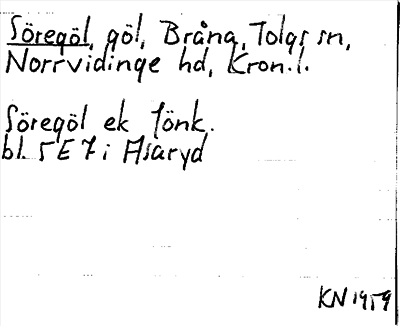 Söregöl, göl, Bråna, Tolgs sn,
Norrvidinge hd, Kron.l.
Söregöl ek Jönk.
bl. 5 E 7 i Asaryd
KN 1959